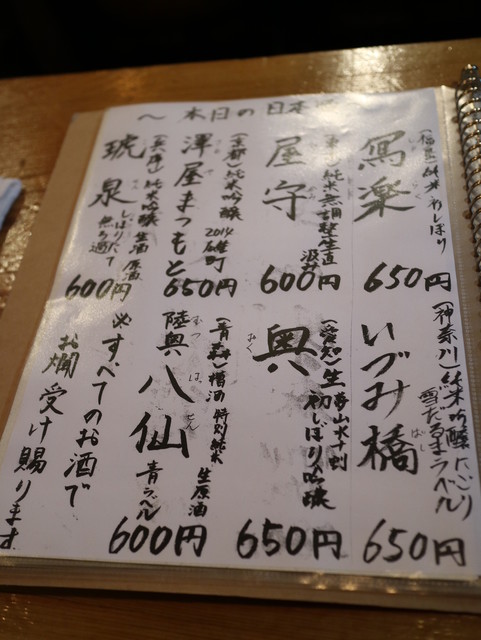 ～本日の日本酒
(福島)純米初しぼり
写楽
650円
(東京)純米無調整生直汲み
屋守
600円
(京都)純米吟醸2014雄町
澤屋まつもと
650円
(兵庫)純米吟醸生酒原酒
しぼりたて無ろ過
琥泉
600円
(神奈川)純米吟醸にごり
雪だるまラベル
いづみ橋
ばし
650円
(愛知)生夢山水十割
初しぼり吟醸
奥
おく
650円
(青森)槽酒特別純米生原酒
陸奥八仙
むつはっせん
青ラベル
600円
※すべてのお酒で
お燗受け賜ります